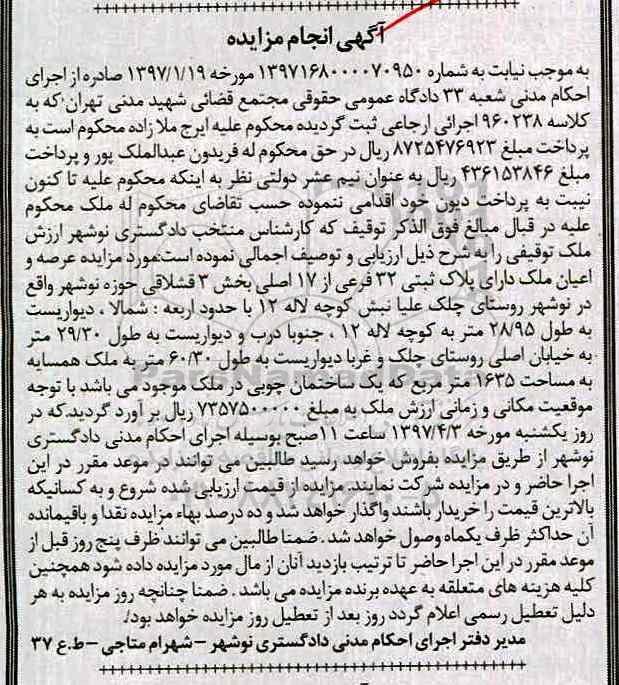 آگهی انجام مزایده
به موجب نیابت به شماره ۱۳۹۷۱۶۸۰۰۰۰۷۰۹۵۰ مورخه ۱۳۹۷/۱/۱۹ صادره از اجرای
احکام مدنی شعبه ۳۳ دادگاه عمومی حقوقی مجتمع قضائی شهید مدنی تهران که به
کلاسه ۹۶۰۲۳۸ اجرائی ارجاعی ثبت گردیده محکوم علیه ایرج ملا زاده محکوم است به
پرداخت مبلغ ۸۷۲۵۴۷۶۹۲۳ ریال در حق محکوم له فریدون عبدالملک پور و پرداخت
مبلغ ۴۳۶۱۵۳۸۴۶ ریال به عنوان نیم عشر دولتی نظر به اینکه محکوم علیه تا کنون
نیبت به پرداخت دیون خود اقدامی ننموده حسب تقاضای محکوم له ملک محکوم
علیه در قبال مبالغ فوق الذکر توقیف که کارشناس منتخب دادگستری نوشهر ارزش
ملک توقیفی را به شرح ذیل ارزیابی و توصیف اجمالی نموده است:مورد مزایده عرصه و
اعیان ملک دارای پلاک ثبتی ۳۲ فرعی از ۱۷ اصلی بخش ۳ قشلاقی حوزه نوشهر واقع
در نوشهر روستای چلک علیا نبش کوچه لاله ۱۲ با حدود اربعه : شمالا ، دیواریست
به طول ۲۸/۹۵ متر به کوچه لاله ۱۲ ، جنوبا درب و دیواریست به طول ۲۹/۳۰ متر
به خیابان اصلی روستای چلک و غربا دیواریست به طول ۶۰/۳۰ متر به ملک همسایه
به مساحت ۱۶۳۵ متر مربع که یک ساختمان چوبی در ملک موجود می باشد با توجه
موقعیت مکانی و زمانی ارزش ملک به مبلغ ۷۳۵۷۵۰۰۰۰۰ ریال بر آورد گردید.که در
روز یکشنبه مورخه ۱۳۹۷/۴/۳ ساعت ۱۱صبح بوسیله اجرای احکام مدنی دادگستری
نوشهر از طریق مزایده بفروش خواهد رسید طالبین می توانند در موعد مقرر در این
اجرا حاضر و در مزایده شرکت نمایند. مزایده از قیمت ارزیابی شده شروع و به کسانیکه
بالاترین قیمت را خریدار باشند واگذار خواهد شد و ده درصد بهاء مزایده نقدا و باقیمانده
آن حداکثر ظرف یکماه وصول خواهد شد . ضمنا طالبین می توانند ظرف پنج روز قبل از
موعد مقرر در این اجرا حاضر تا ترتیب بازدید آنان از مال مورد مزایده داده شود همچنین
کلیه هزینه های متعلقه به عهده برنده مزایده می باشد . ضمنا چنانچه روز مزایده به هر
دلیل تعطیل رسمی اعلام گردد روز بعد از تعطیل روز مزایده خواهد بود/.
مدیر دفتر اجرای احکام مدنی دادگستری نوشهر – شهرام متاجی – ط.ع ۳۷